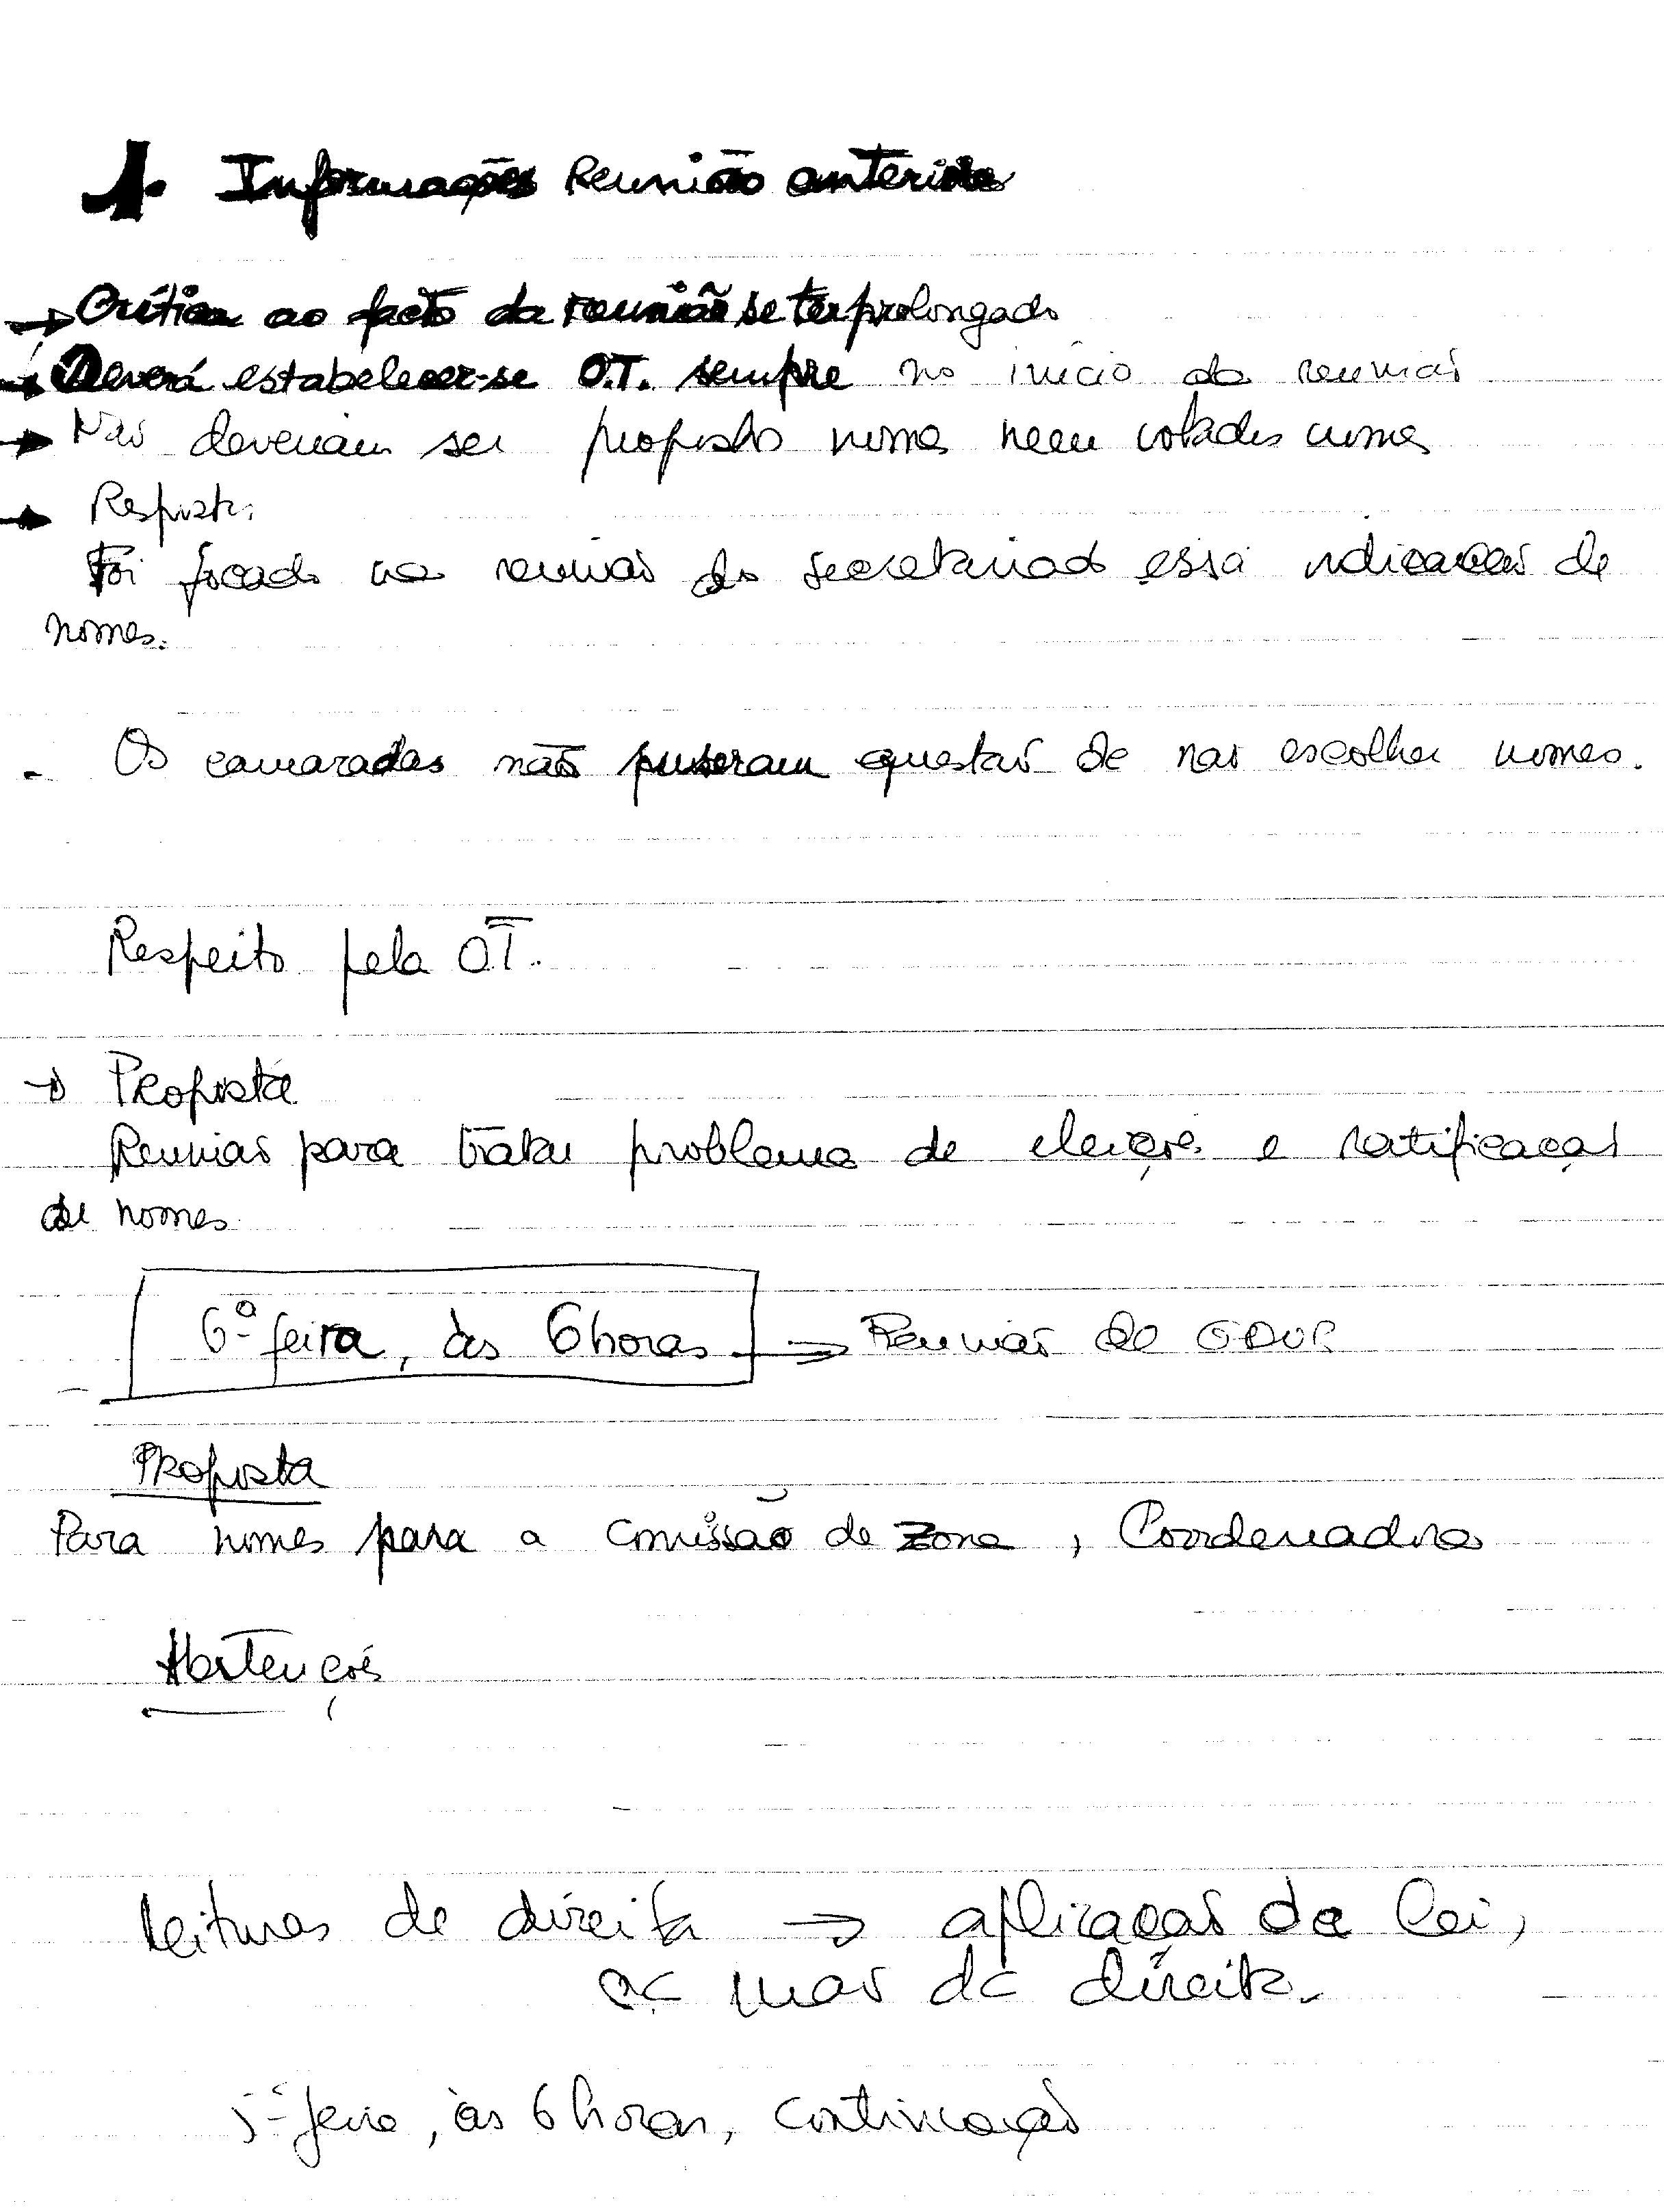 1. Informações Reunião anterior
→ Crítica ao facto da reunião se ter prolongado
→ Deverá estabelecer-se O.T. sempre no início da reunião
→ Não deveriam ser propostos nomes nem votados nomes
→ Resposta:
Foi focado na reunião do secretariado essa indicação de
nomes.
- Os camaradas não puseram questão de não escolher nomes.
Respeito pela O.T.
→ Proposta
Reunião para tratar problema de eleições e ratificação
de nomes
6ª feira, às 6 horas ⇒ Reunião de GDUP
Proposta
Para nomes para a comissão de zona, Coordenadora
Abstenções
leituras de direita → aplicação da lei,
mão da direita.
5ª feira, às 6 horas, continuação